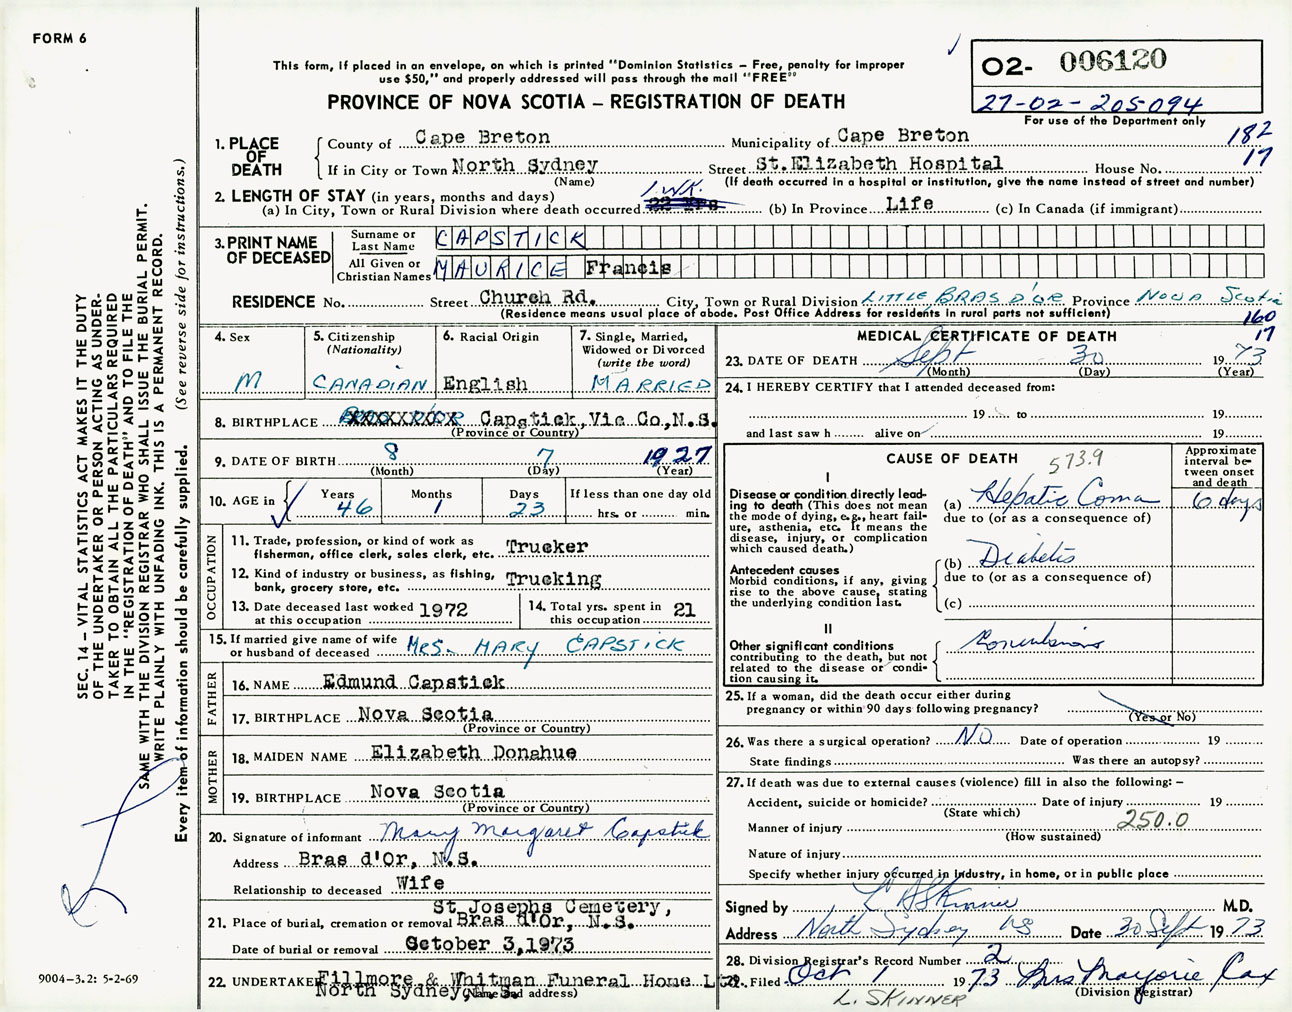 FORM 6
This form, if placed in an envelope, on which is printed "Dominion Statistics – Free, penalty for improper
use $50," and properly addressed will pass through the mail "FREE"
PROVINCE OF NOVA SCOTIA – REGISTRATION OF DEATH
O2- 006120
27-02-205-094
For use of the Department only
182
17
1. PLACE OF DEATH
County of Cape Breton Municipality of Cape Breton
If in City or Town North Sydney Street St.Elizabeth Hospital House No.
(Name) (If death occurred in a hospital or institution, give the name instead of street and number)
2. LENGTH OF STAY (in years, months and days) 1 WK.
(a) In City, Town or Rural Division where death occurred 22 Yrs (b) In Province Life (c) In Canada (if immigrant)
3. PRINT NAME OF DECEASED
Surname or Last Name CAPSTICK
All Given or Christian Names MAURICE Francis
RESIDENCE No. Street Church Rd. City, Town or Rural Division LITTLE BRAS D'OR Province NOVA Scotia
(Residence means usual place of abode. Post Office Address for residents in rural parts not sufficient)
160
17
4. Sex M
5. Citizenship (Nationality) CANADIAN
6. Racial Origin English
7. Single, Married, Widowed or Divorced (write the word) MARRIED
8. BIRTHPLACE XXXXXXXXX Capstick,Vic Co,N.S.
(Province or Country)
9. DATE OF BIRTH 8 7 1927
(Month) (Day) (Year)
10. AGE in Years 46 Months 1 Days 23 If less than one day old hrs. or min.
OCCUPATION
11. Trade, profession, or kind of work as fisherman, office clerk, sales clerk, etc. Trucker
12. Kind of industry or business, as fishing, bank, grocery store, etc. Trucking
13. Date deceased last worked at this occupation 1972
14. Total yrs. spent in this occupation 21
15. If married give name of wife or husband of deceased Mrs. MARY CAPSTICK
FATHER
16. NAME Edmund Capstick
17. BIRTHPLACE Nova Scotia
(Province or Country)
MOTHER
18. MAIDEN NAME Elizabeth Donahue
19. BIRTHPLACE Nova Scotia
(Province or Country)
20. Signature of informant Mary Margaret Capstick
Address Bras d'Or, N.S.
Relationship to deceased Wife
St Josephs Cemetery,
21. Place of burial, cremation or removal Bras d'Or, N.S.
Date of burial or removal October 3,1973
22. UNDERTAKER Fillmore & Whitman Funeral Home Ltd.
North Sydney,N.S.
(Name and address)
MEDICAL CERTIFICATE OF DEATH
23. DATE OF DEATH Sept 30 1973
(Month) (Day) (Year)
24. I HEREBY CERTIFY that I attended deceased from:
19 to 19
and last saw h alive on 19
CAUSE OF DEATH 573.9
Approximate interval between onset and death
I
Disease or condition directly leading to death (This does not mean the mode of dying, e.g., heart failure, asthenia, etc. It means the disease, injury, or complication which caused death.)
(a) Hepatic Coma 6 days
due to (or as a consequence of)
Antecedent causes
Morbid conditions, if any, giving rise to the above cause, stating the underlying condition last.
(b) Diabetis
due to (or as a consequence of)
(c)
II
Other significant conditions
contributing to the death, but not related to the disease or condition causing it.
Convulsions
25. If a woman, did the death occur either during pregnancy or within 90 days following pregnancy?
(Yes or No)
26. Was there a surgical operation? NO Date of operation 19
State findings Was there an autopsy?
27. If death was due to external causes (violence) fill in also the following: –
Accident, suicide or homicide? Date of injury 19
(State which)
Manner of injury 250.0
(How sustained)
Nature of injury
Specify whether injury occurred in industry, in home, or in public place
Signed by L Skinner M.D.
Address North Sydney NS Date 30 Sept 1973
28. Division Registrar's Record Number 2
29. Filed Oct 1 1973 Mrs Marjorie Cox
(Division Registrar)
L. SKINNER
SEC. 14 – VITAL STATISTICS ACT MAKES IT THE DUTY
OF THE UNDERTAKER OR PERSON ACTING AS UNDER-
TAKER TO OBTAIN ALL THE PARTICULARS REQUIRED
IN THE "REGISTRATION OF DEATH" AND TO FILE THE
SAME WITH THE DIVISION REGISTRAR WHO SHALL ISSUE THE BURIAL PERMIT.
WRITE PLAINLY WITH UNFADING INK. THIS IS A PERMANENT RECORD.
Every item of information should be carefully supplied. (See reverse side for instructions.)
9004–3.2: 5-2-69